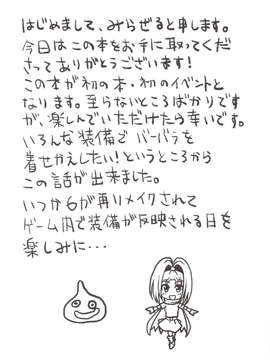 はじめまして、みらぜると申します。
今日はこの本をお手に取ってくだ
さってありがとうございます！
この本が初の本・初のイベントと
なります。至らないところばかりです
が、楽しんでいただけたら幸いです。
いろんな装備でバーバラを
着せかえしたい！というところから
この話が出来ました。
いつか6が再リメイクされて
ゲーム内で装備が反映される日を
楽しみに…